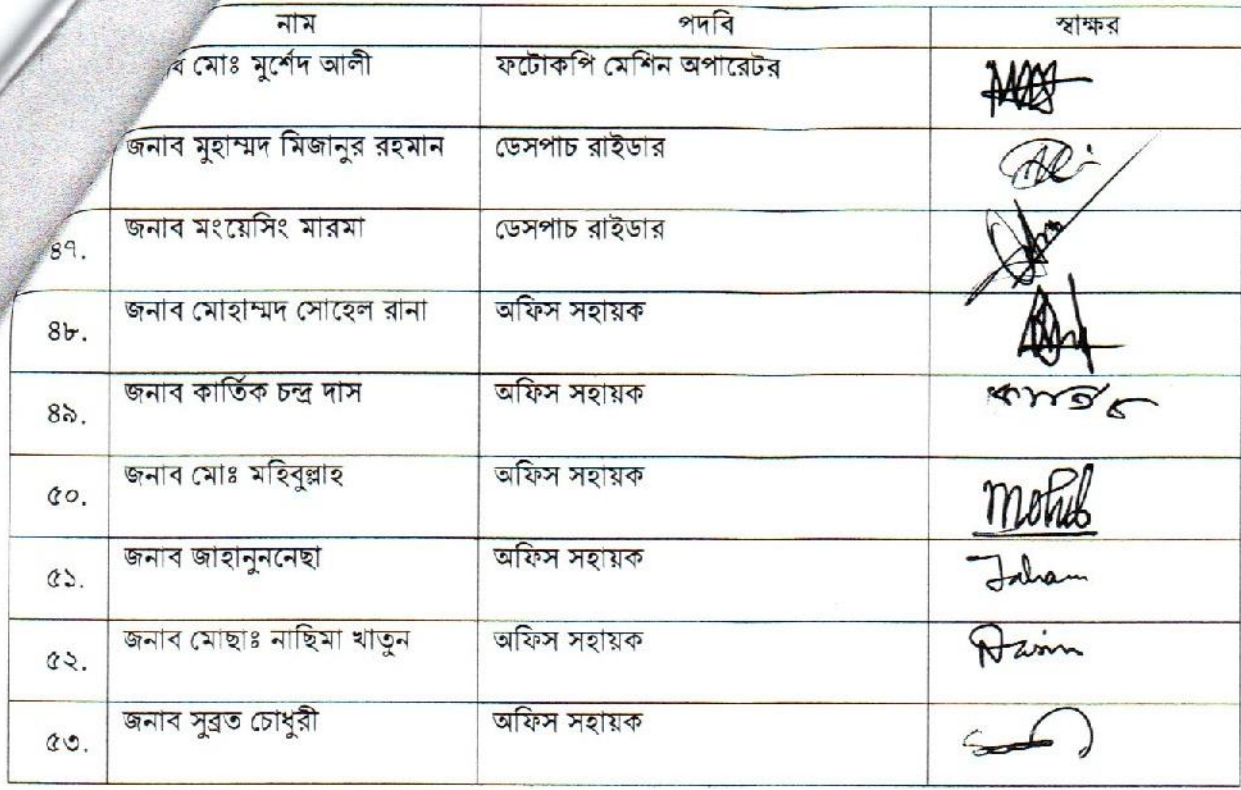 নাম পদবি স্বাক্ষর
ব মোঃ মুর্শেদ আলী ফটোকপি মেশিন অপারেটর
জনাব মুহাম্মদ মিজানুর রহমান ডেসপাচ রাইডার
৪৭. জনাব মংয়েসিং মারমা ডেসপাচ রাইডার
৪৮. জনাব মোহাম্মদ সোহেল রানা অফিস সহায়ক
৪৯. জনাব কার্তিক চন্দ্র দাস অফিস সহায়ক
৫০. জনাব মোঃ মহিবুল্লাহ অফিস সহায়ক Mohib
৫১. জনাব জাহানুননেছা অফিস সহায়ক
৫২. জনাব মোছাঃ নাছিমা খাতুন অফিস সহায়ক
৫৩. জনাব সুব্রত চৌধুরী অফিস সহায়ক